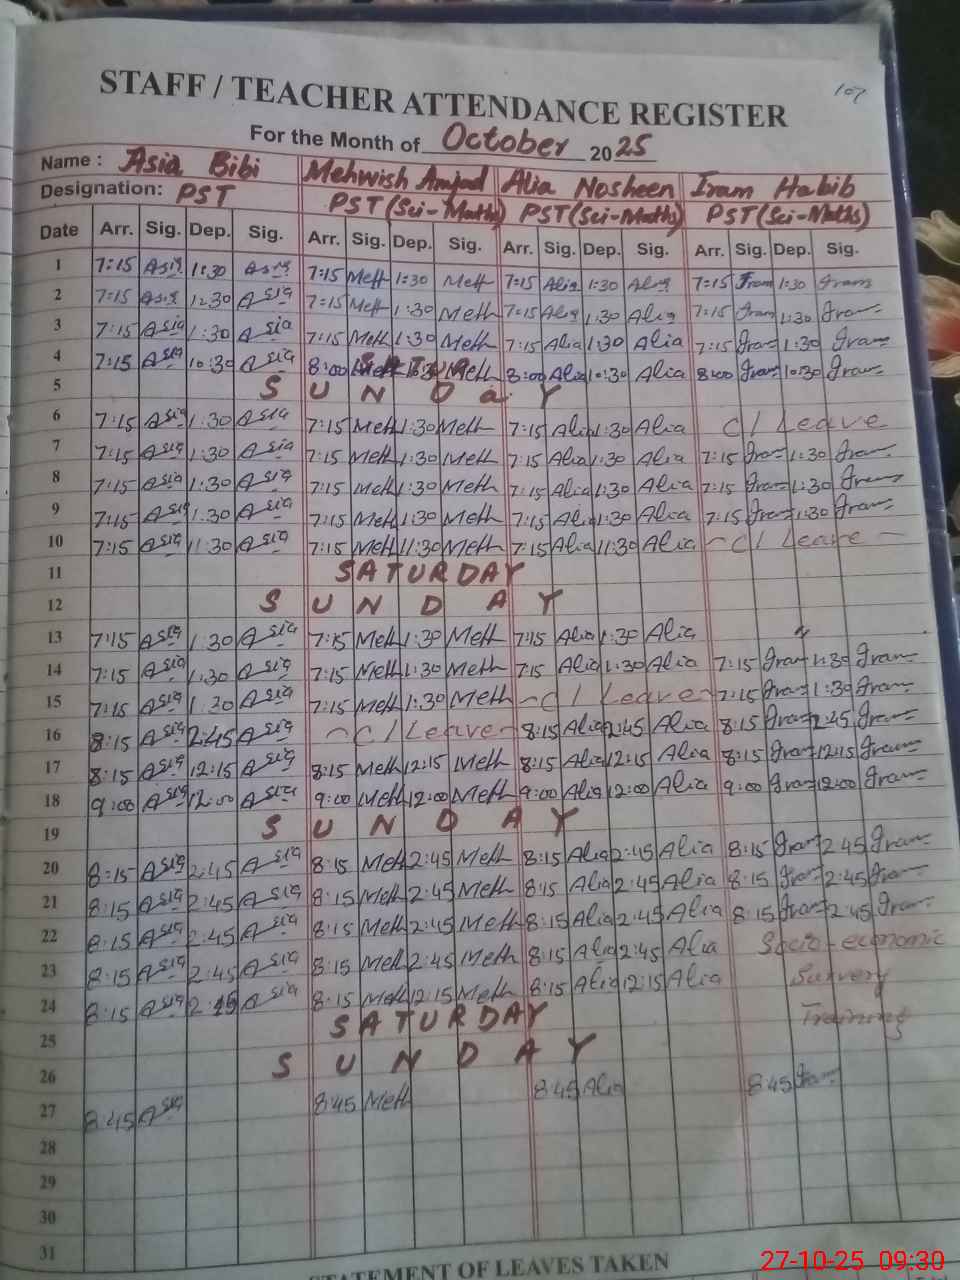 107
STAFF / TEACHER ATTENDANCE REGISTER
For the Month of October 2025
Name : Asia Bibi Mehwish Amjad Alia Nosheen Iram Habib
Designation: PST PST (Sci-Maths) PST (Sci-Maths) PST (Sci-Maths)
Date Arr. Sig. Dep. Sig. Arr. Sig. Dep. Sig. Arr. Sig. Dep. Sig. Arr. Sig. Dep. Sig.
1 7:15 Asia 1:30 Asia 7:15 Meh 1:30 Meh 7:15 Alia 1:30 Alia 7:15 Iram 1:30 Iram
2 7:15 Asia 1:30 Asia 7:15 Meh 1:30 Meh 7:15 Alia 1:30 Alia 7:15 Iram 1:30 Iram
3 7:15 Asia 1:30 Asia 7:15 Meh 1:30 Meh 7:15 Alia 1:30 Alia 7:15 Iram 1:30 Iram
4 7:15 Asia 10:30 Asia 8:00 Meh Meh 8:00 Alia 10:30 Alia 8:00 Iram 10:30 Iram
5 S U N D a Y
6 7:15 Asia 1:30 Asia 7:15 Meh 1:30 Meh 7:15 Alia 1:30 Alia C/ Leave
7 7:15 Asia 1:30 Asia 7:15 Meh 1:30 Meh 7:15 Alia 1:30 Alia 7:15 Iram 1:30 Iram
8 7:15 Asia 1:30 Asia 7:15 Meh 1:30 Meh 7:15 Alia 1:30 Alia 7:15 Iram 1:30 Iram
9 7:15 Asia 1:30 Asia 7:15 Meh 1:30 Meh 7:15 Alia 1:30 Alia 7:15 Iram 1:30 Iram
10 7:15 Asia 11:30 Asia 7:15 Meh 11:30 Meh 7:15 Alia 11:30 Alia - C/ Leave -
11 SATURDAY
12 S U N D A Y
13 7:15 Asia 1:30 Asia 7:15 Meh 1:30 Meh 7:15 Alia 1:30 Alia "
14 7:15 Asia 1:30 Asia 7:15 Meh 1:30 Meh 7:15 Alia 1:30 Alia 7:15 Iram 1:30 Iram
15 7:15 Asia 1:30 Asia 7:15 Meh 1:30 Meh - C/ Leave - 7:15 Iram 1:30 Iram
16 8:15 Asia 2:45 Asia - C/ Leave - 8:15 Alia 2:45 Alia 8:15 Iram 2:45 Iram
17 8:15 Asia 12:15 Asia 8:15 Meh 12:15 Meh 8:15 Alia 12:15 Alia 8:15 Iram 12:15 Iram
18 9:00 Asia 12:00 Asia 9:00 Meh 12:00 Meh 9:00 Alia 12:00 Alia 9:00 Iram 12:00 Iram
19 S U N D A Y
20 8:15 Asia 2:45 Asia 8:15 Meh 2:45 Meh 8:15 Alia 2:45 Alia 8:15 Iram 2:45 Iram
21 8:15 Asia 2:45 Asia 8:15 Meh 2:45 Meh 8:15 Alia 2:45 Alia 8:15 Iram 2:45 Iram
22 8:15 Asia 2:45 Asia 8:15 Meh 2:45 Meh 8:15 Alia 2:45 Alia 8:15 Iram 2:45 Iram
23 8:15 Asia 2:45 Asia 8:15 Meh 2:45 Meh 8:15 Alia 2:45 Alia Socio-economic
24 8:15 Asia Asia 8:15 Meh 12:15 Meh 8:15 Alia 12:15 Alia Survery
25 SATURDAY Training
26 S U N D A Y
27 8:45 Asia 8:45 Meh 8:45 Alia 8:45 Iram
28
29
30
31
STATEMENT OF LEAVES TAKEN
27-10-25 09:30